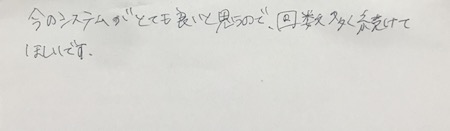 今のシステムがとても良いと思うので、回数多く続けて
ほしいです。